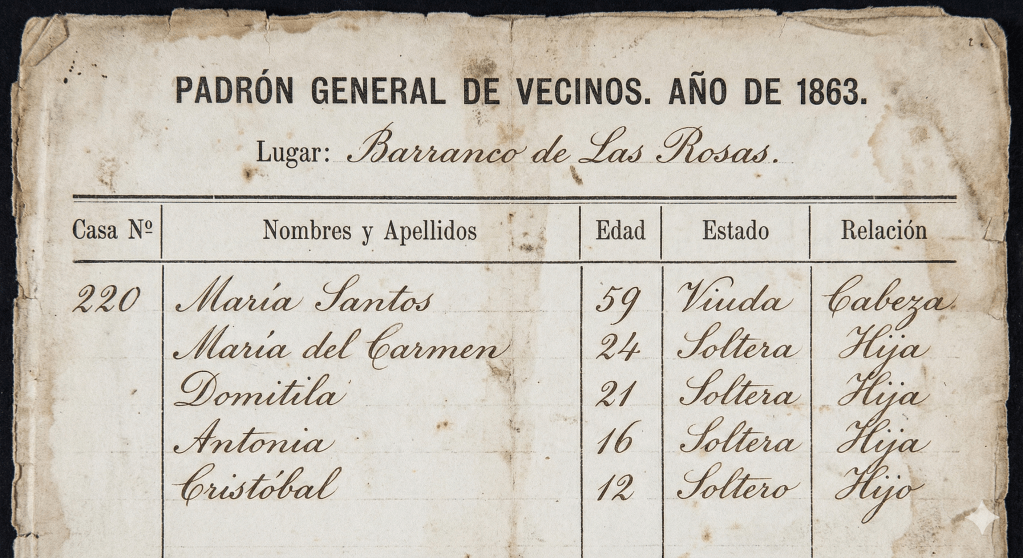 PADRÓN GENERAL DE VECINOS. AÑO DE 1863.
Lugar: Barranco de Las Rosas.
Casa Nº Nombres y Apellidos Edad Estado Relación
220 María Santos 59 Viuda Cabeza
María del Carmen 24 Soltera Hija
Domitila 21 Soltera Hija
Antonia 16 Soltera Hija
Cristóbal 12 Soltero Hijo